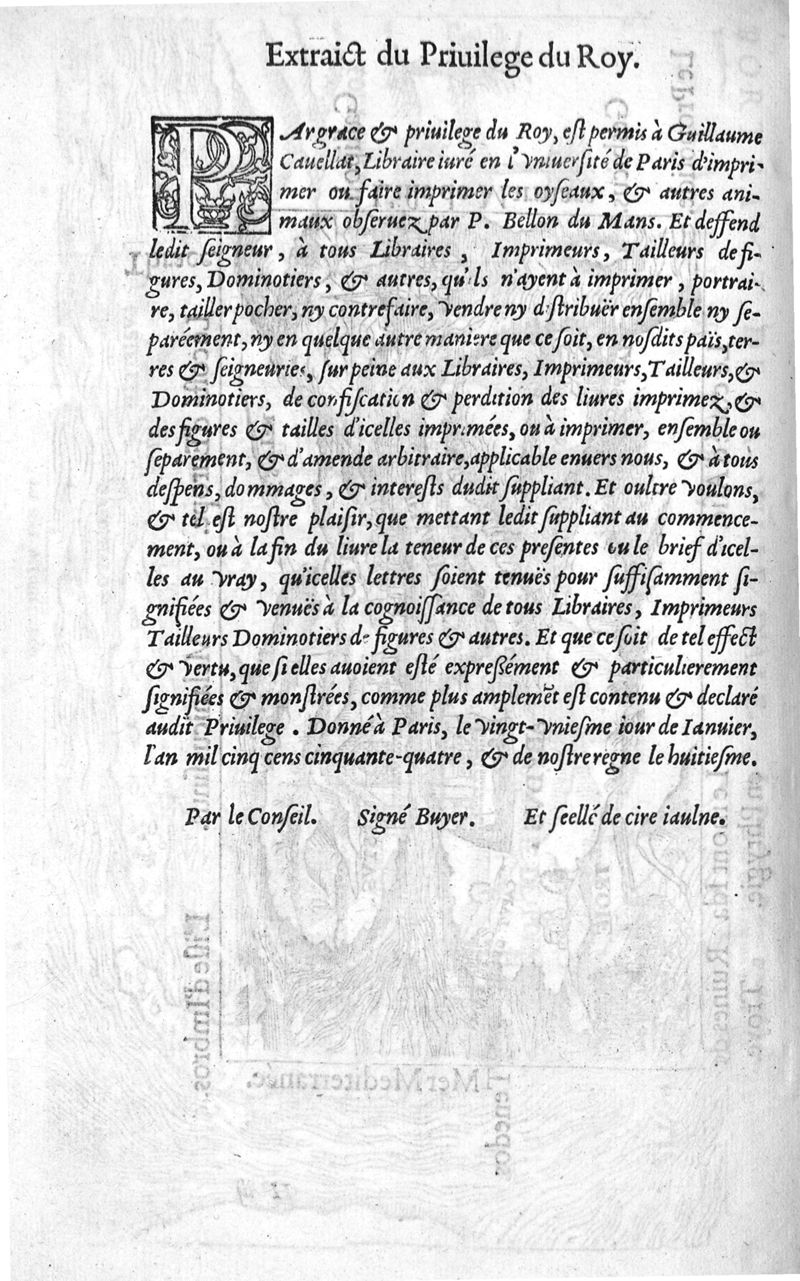 Extraict du Priuilege du Roy.
PAr grace & priuilege du Roy, est permis à Guillaume
Cauellat, Libraire iuré en l'Vniuersité de Paris d'impri-
mer ou faire imprimer les oyseaux, & autres ani-
maux obseruez par P. Bellon du Mans. Et deffend
ledit seigneur, à tous Libraires, Imprimeurs, Tailleurs de fi-
gures, Dominotiers, & autres, qu'ils n'ayent à imprimer, portrai-
re, tailler pocher, ny contrefaire, vendre ny distribuër ensemble ny se-
paréement, ny en quelque autre maniere que ce soit, en nosdits païs, ter-
res & seigneuries, sur peine aux Libraires, Imprimeurs, Tailleurs, &
Dominotiers, de confiscation & perdition des liures imprimez, &
des figures & tailles d'icelles imprimées, ou à imprimer, ensemble ou
separement, & d'amende arbitraire, applicable enuers nous, & à tous
despens, dommages, & interests dudit suppliant. Et oultre voulons,
& tel est nostre plaisir, que mettant ledit suppliant au commence-
ment, ou à la fin du liure la teneur de ces presentes ou le brief d'icel-
les au vray, qu'icelles lettres soient tenuës pour suffisamment si-
gnifiées & venuës à la cognoissance de tous Libraires, Imprimeurs
Tailleurs Dominotiers de figures & autres. Et que ce soit de tel effect
& vertu, que si elles auoient esté expressément & particulierement
signifiées & monstrées, comme plus amplemēt est contenu & declaré
audit Priuilege. Donné à Paris, le vingt-vniesme iour de Ianuier,
l'an mil cinq cens cinquante-quatre, & de nostre regne le huitiesme.
Par le Conseil. Signé Buyer. Et seellé de cire iaulne.
L'isle d'Imbros.
Mer Mediterranée.
Tenedos